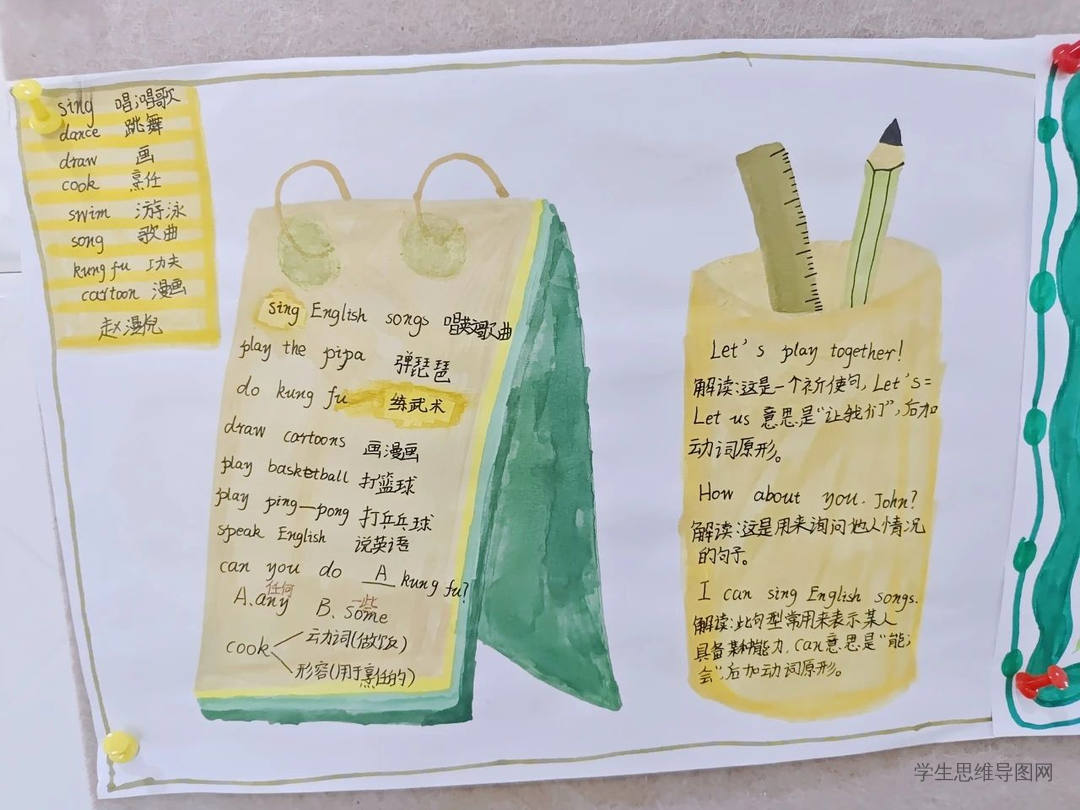 sing 唱;唱歌
dance 跳舞
draw 画
cook 烹任
swim 游泳
song 歌曲
kung fu 功夫
cartoon 漫画
sing English songs 唱英文歌曲
play the pipa 弹琵琶
do kung fu 练武术
draw cartoons 画漫画
play basketball 打篮球
play ping-pong 打乒乓球
speak English 说英语
can you do A kung fu?
任何 一些
A.any B.some
cook 动词(做饭)
形容(用于烹任的)
Let's play together!
解读:这是一个祈使句,Let's=
Let us 意思是“让我们”,后加
动词原形。
How about you. John?
解读:这是用来询问他人情况
的句子。
I can sing English songs.
解读:此句型常用来表示某人
具备某种能力.can意思是“能;
会”,后加动词原形。
学生思维导图网